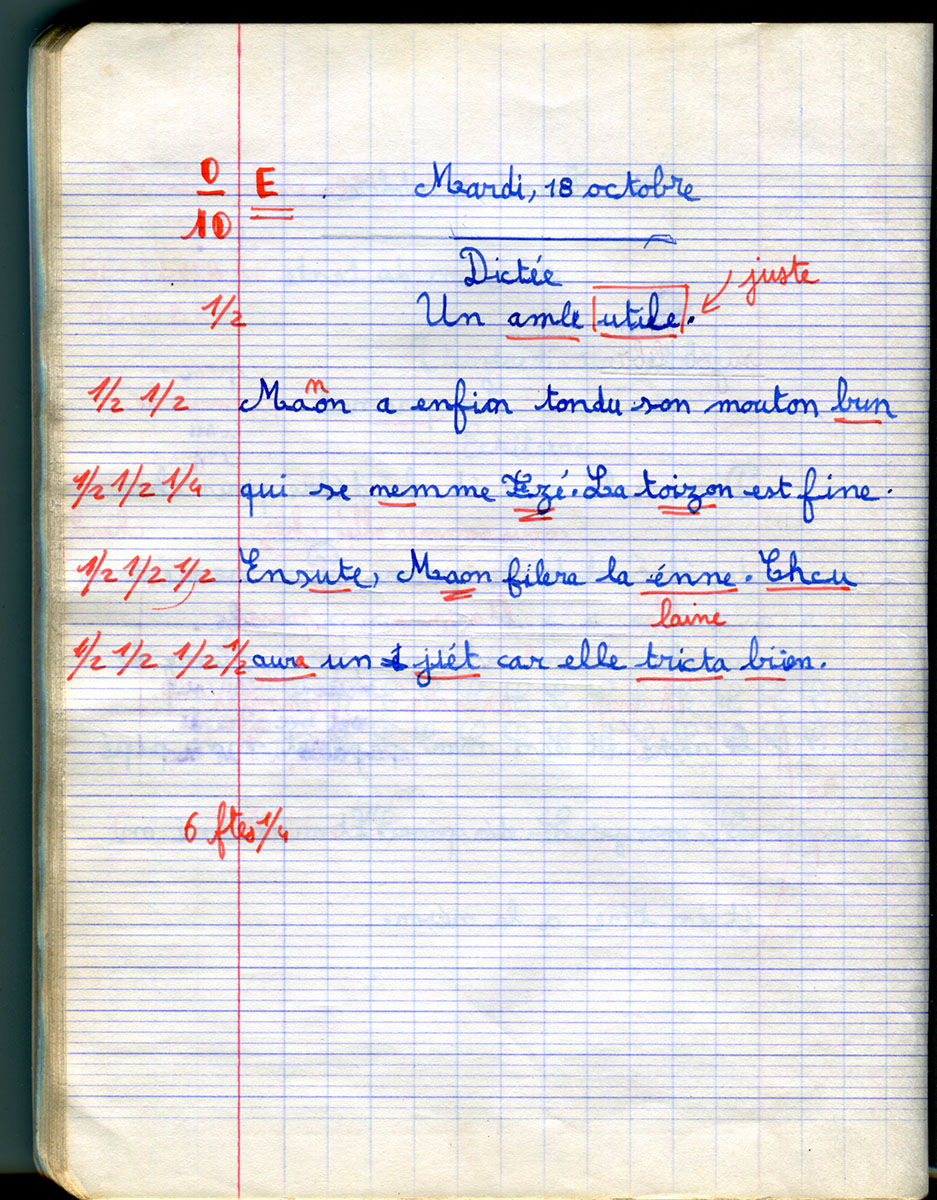 0/10 E Mardi, 18 octobre
Dictée
juste
1/2 Un amle utile.
n
1/2 1/2 Maon a enfion tondu son mouton bun
1/2 1/2 1/4 qui se nemme Ezé. La toizon est fine.
1/2 1/2 1/2 Ensute, Maon filera la énne. Chcu
laine
1/2 1/2 1/2 1/2 aura un jiét car elle tricta biien.
6 ftes 1/4